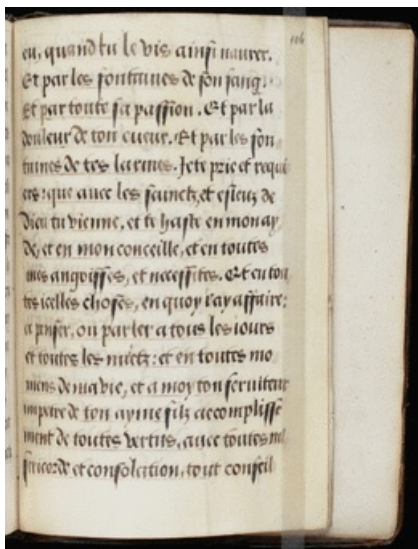 116
eu, quand tu le vis ainsi naurer.
Et par les fontaines de son sang.
Et par toute sa passion. Et par la
douleur de ton cueur. Et par les fon
taines de tes larmes. Je te prie et requi
ers: que auec les sainctz, et esleuz de
Dieu tu vienne, et te haste en mon ay
de, et en mon conceille, et en toutes
mes angoisses, et necessites. Et en tou
tes icelles choses, en quoy i'ay affaire:
et penser, ou parler a tous les iours
et toutes les nuictz: et en toutes mo
mens de ma vie, et a moy ton seruiteur
impetre de ton ayme filz accomplisse
ment de toutes vertus, auec toutes mi
sericorde et consolation, tout conseil